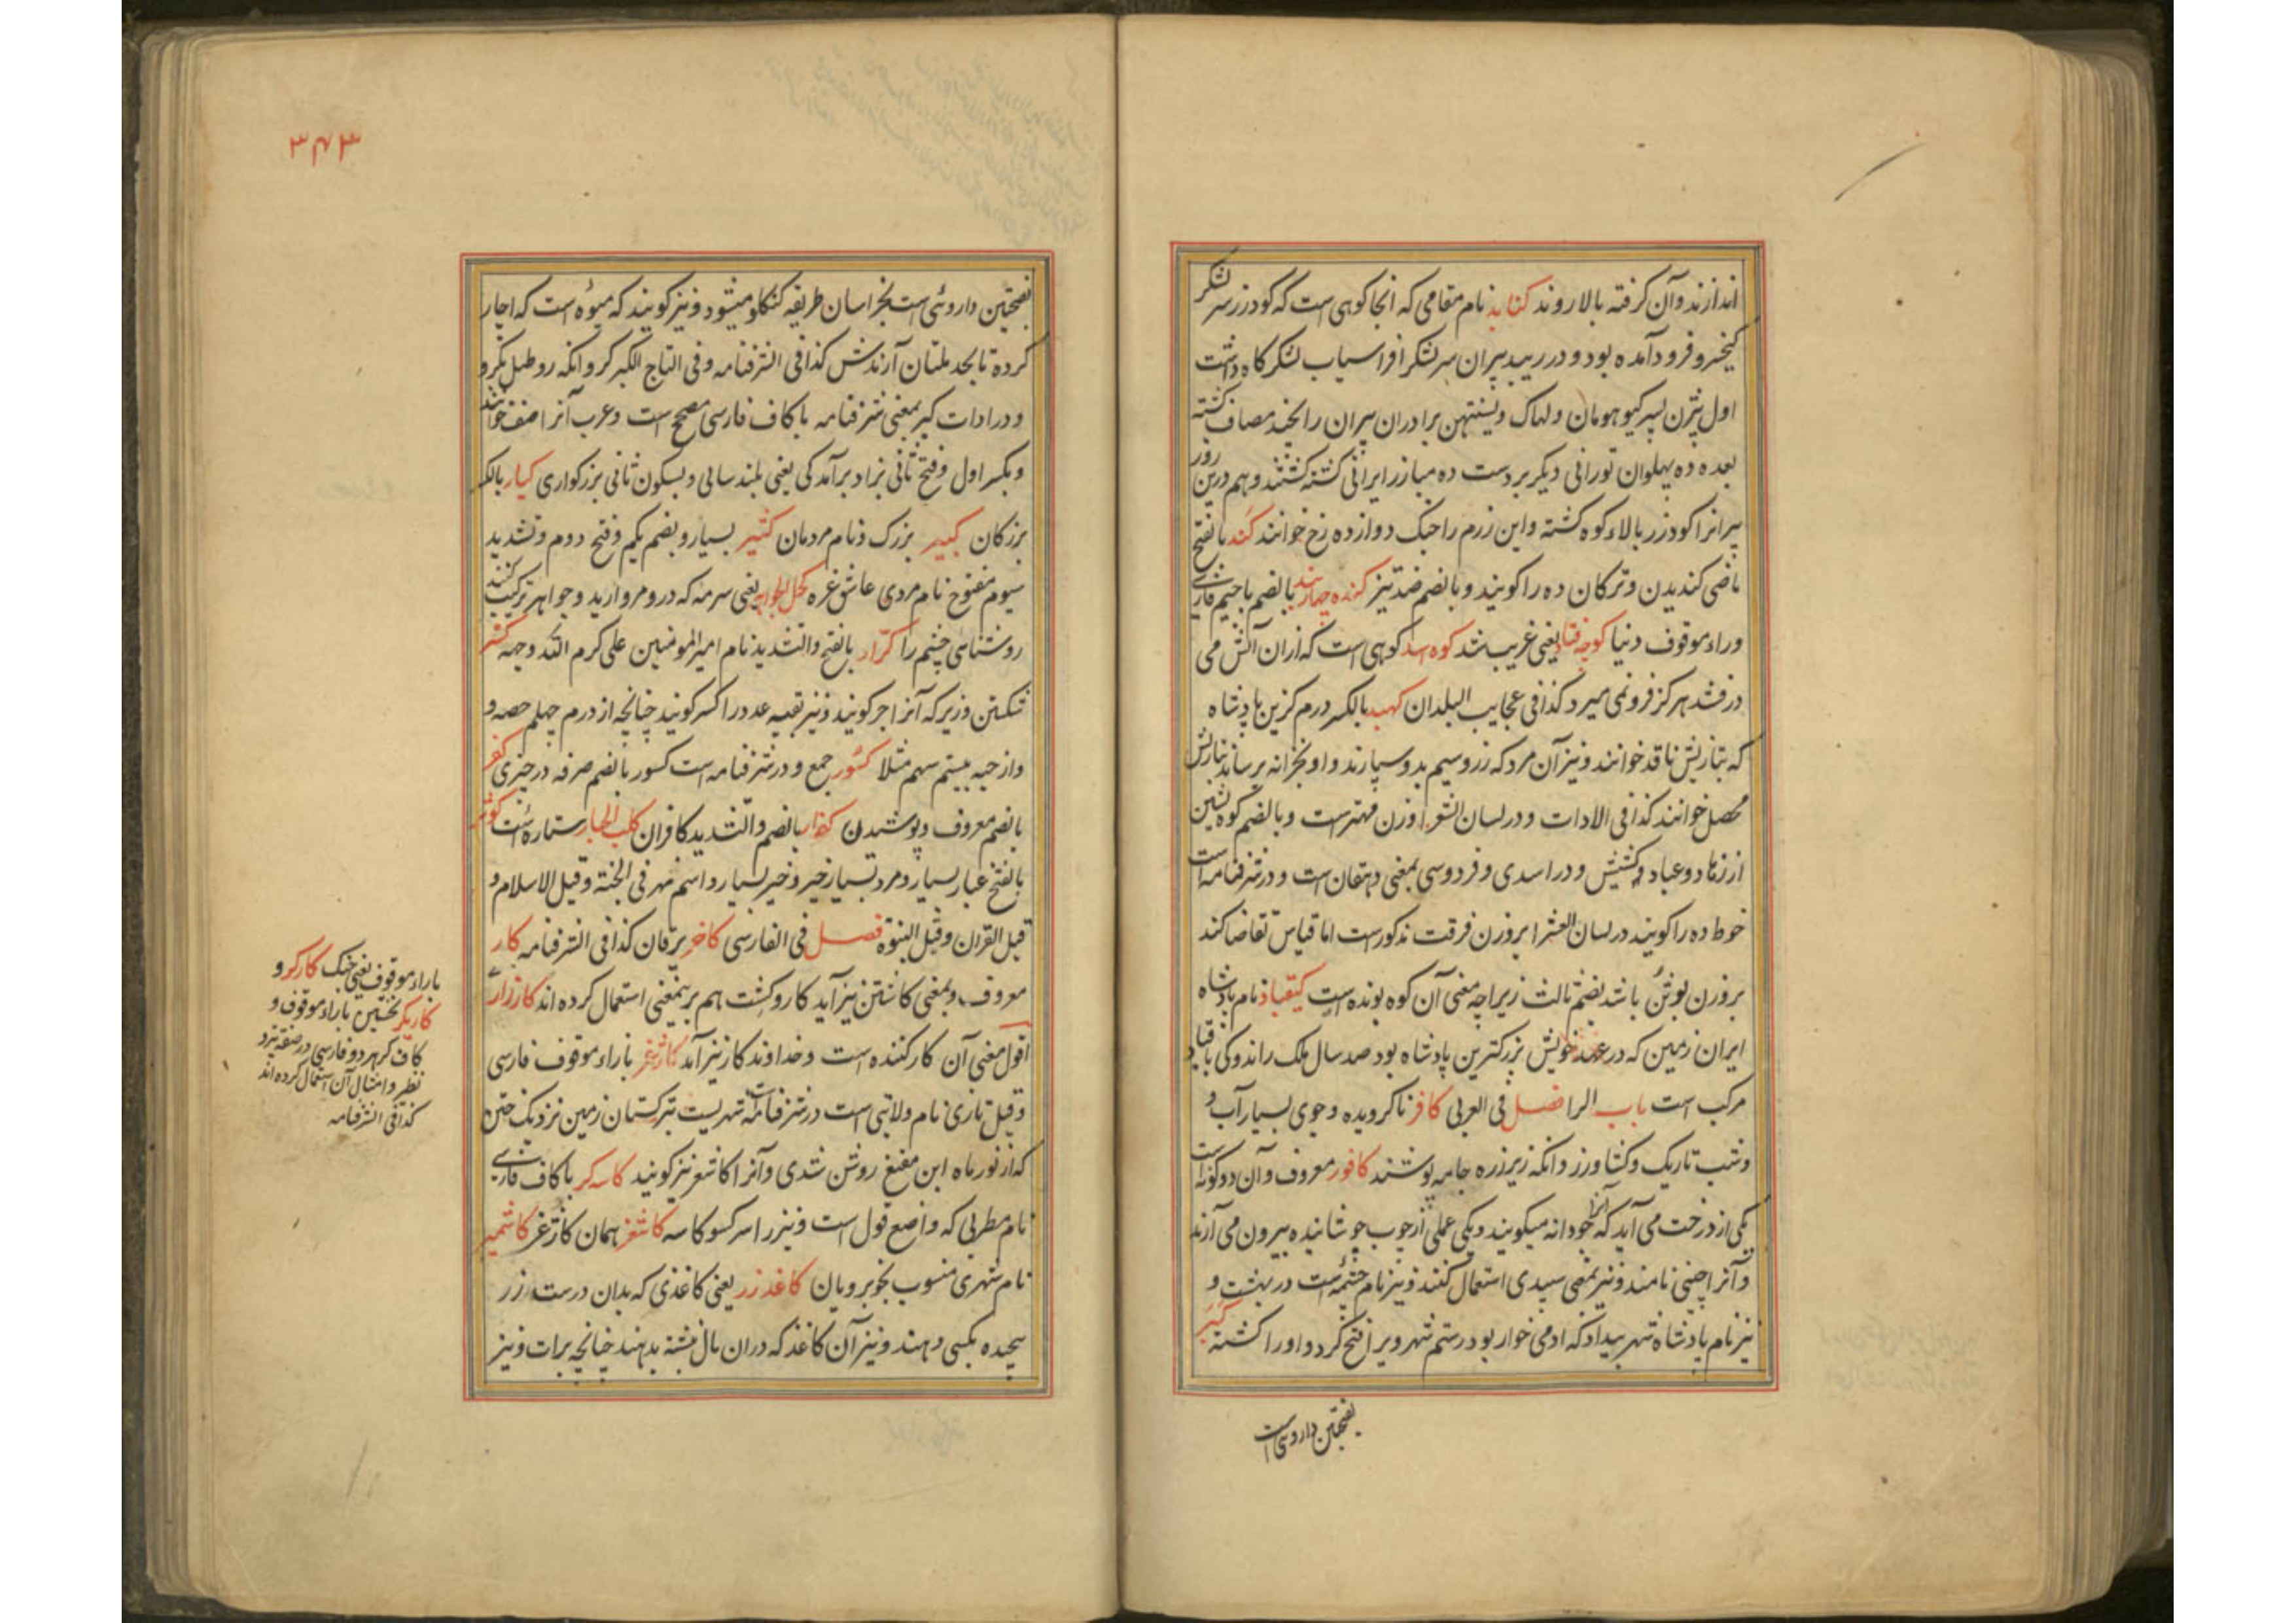 اندازند وآن گرفته بالا روند کنابد نام مقامی که انجا کوهی است که کودرز سر لشکر
کیخسرو فرود آمده بود و در ریبد پیران سر لشکر افراسیاب لشکرگاه داشت
اول بیژن پسر کیو هومان ولهاک و نستیهن برادران پیران را بچند مصاف کشته
بعده ده پهلوان تورانی دیگر بر دست ده مبارز ایرانی کشته کشتند و هم درین روز
پیرانرا کودرز بالاء کوه کشته واین رزم را جنک دوازده رخ خوانند کند بالفتح
ماضی کندیدن و ترکان ده را کویند و بالضم ضد تیز کنده بالضم با جیم فارسی
وراء موقوف دنیا کوچه فتاد یعنی غریب شد کوه کوهی است که ازان آتش می
درفشد هرکز فرو نمی میرد کذا فی عجایب البلدان کهبد بالکسر درم کزین پادشاه
که بتازیش ناقد خوانند و نیز آن مرد که زر و سیم بدو سپارند و او بخزانه برساند بتازیش
محصل خوانند کذا فی الادات و در لسان الشعرا وزن مهترست و بالضم کوه نشین
از زهاد و عباد و کشیش و در اسدی و فردوسی بمعنی دهقان است و در شرفنامه است
خوط ده را کویند در لسان الشعرا بر وزن فرقت مذکورست اما قیاس تقاضا کند
بر وزن باشد بضم ثالث زیراچه معنی آن کوه بونده است کیقباد نام پادشاه
ایران زمین که در عهد خویش بزرکترین پادشاه بود صد سال ملک راند و کی با قباد
مرکب است باب الرا فصل فی العربی کافر ناکرویده و جوی بسیار آب و
و شب تاریک و کشاورز و انکه زیر زره جامه پوشند کافور معروف و آن دو کونه است
یکی از درخت می آید که آنرا جودانه میکویند و یکی عملی از چوب جوشانیده بیرون می آرند
و آنرا چینی نامند و نیز بمعنی سپیدی استعمال کنند و نیز نام چشمه است در بهشت و
نیز نام پادشاه شهر بیداد که ادمی خوار بود رستم شهر ویرا فتح کرد و اورا کشته کبر
بفتحتین داروی است
۳۴۳
بفتحتین داروئی است بخراسان طریقه کنکاو میشود و نیز کویند که میوه است که اچار
کرده تا بحد ملتان آرندش کذا فی الشرفنامه و فی التاج الکبر کر و انکه رو طبل بکرو
و در ادات کبر بمعنی شرفنامه با کاف فارسی مصحح است و عرب آنرا اصف خوانند
و بکسر اول و فتح ثانی بزاد برآمدکی یعنی بلند سالی و بسکون ثانی بزرکواری کبار بالکسر
بزرکان کبیر بزرک و نام مردمان کثیر بسیار و بضم یکم و فتح دوم و تشدید
سیوم مفتوح نام مردی عاشق عزه کحل الجواهر یعنی سرمه که درو مروارید و جواهر ترکیب کنند
روشنائی چشم را کرار بالفتح والتشدید نام امیرالمومنین علی کرم الله وجهه کسر
شکستن و زیر که آنرا جر کویند و نیز نقیه عدد را کسر کویند چنانچه از درم چهلم حصه و
و از حبه بیستم سهم مثلا کسور جمع و در شرفنامه است کسور بالضم صرفه در چیزی کفر
بالضم معروف و پوشیدن کفار بالضم والتشدید کافران کلب الجبار ستاره است کوثر
بالفتح غبار بسیار و مرد بسیار خیر و خیر بسیار و اسم نهر فی الجنة و قیل الاسلام و
قیل القران و قیل النبوة فصل فی الفارسی کاخر یرقان کذا فی الشرفنامه کار
معروف و بمعنی کاشتن نیز آید کار و کشت هم برینمعنی استعمال کرده اند کارزار
اقول معنی آن کار کننده است و خداوند کار نیز آید کاژغر باراء موقوف فارسی
و قیل تازی نام ولایتی است در شرفنامه است شهریست بترکستان زمین نزدیک ختن
که از نور ماه ابن مقنع روشن شدی و آنرا کاشغر نیز کویند کاسه کر با کاف فارسی
نام مطربی که واضع قول است و نیز راسر کسو کاسه کاشغر همان کاژغر کاشمیر
نام شهری منسوب بخوبرویان کاغذ زر یعنی کاغذی که بدان درست زر
پیچیده بکسی دهند و نیز آن کاغذ که دران مال نبشته بدهند چنانچه برات و نیز
باراء موقوف یعنی جنک کارکر و
کاریکر نخستین باراء موقوف و
کاف کر هر دو فارسی در صفت نیزد
نظر و امثال آن استعمال کرده اند
کذا فی الشرفنامه